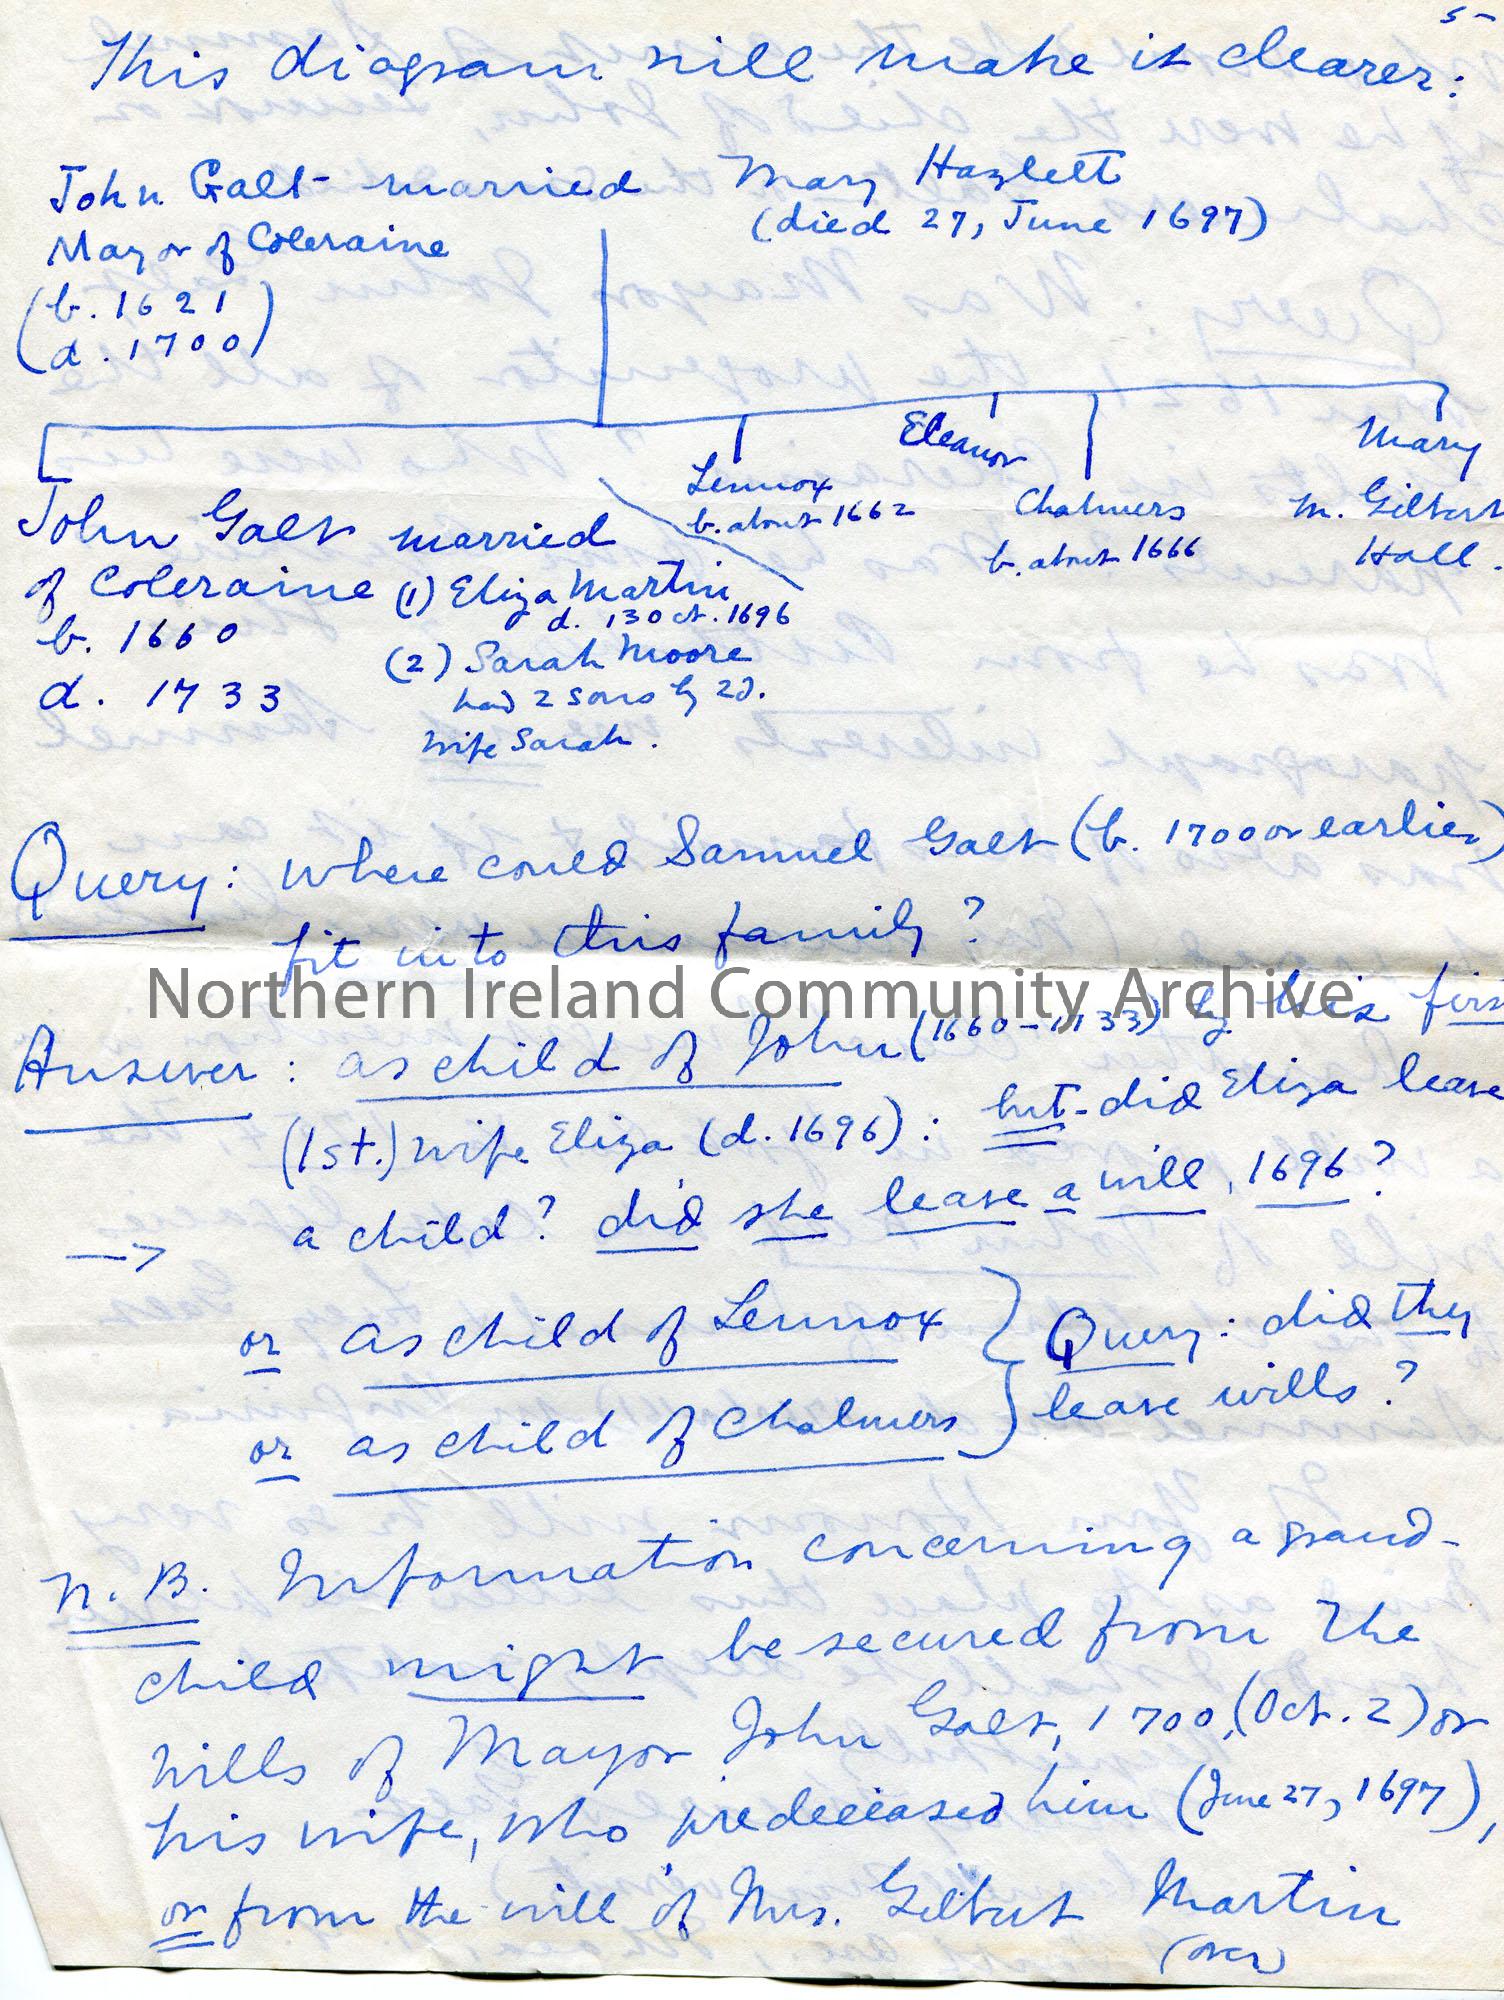 5-
This diagram will make it clearer:
John Galt - married Mary Hazlett
Mayor of Coleraine (died 27, June 1697)
(b. 1621
d. 1700)
John Galt married
of Coleraine (1) Eliza Martin
b. 1660 d. 13 Oct. 1696
d. 1733 (2) Sarah Moore
had 2 sons by 2d.
wife Sarah.
Lennox
b. about 1662
Eleanor
Chalmers
b. about 1666
Mary
m. Gilbert
Hall.
Query: where could Samuel Galt (b. 1700 or earlier)
fit into this family?
Northern Ireland Community Archive
Answer: as child of John (1660-1733) by his first
(1st.) wife Eliza (d. 1696): but did Eliza leave
—> a child? did she leave a will, 1696?
or as child of Lennox } Query: did they
or as child of Chalmers } leave wills?
N.B. Information concerning a grand-
child might be secured from the
wills of Mayor John Galt, 1700, (Oct. 2) or
his wife, who predeceased him (June 27, 1697),
or from the will of Mrs. Gilbert Martin
(over)